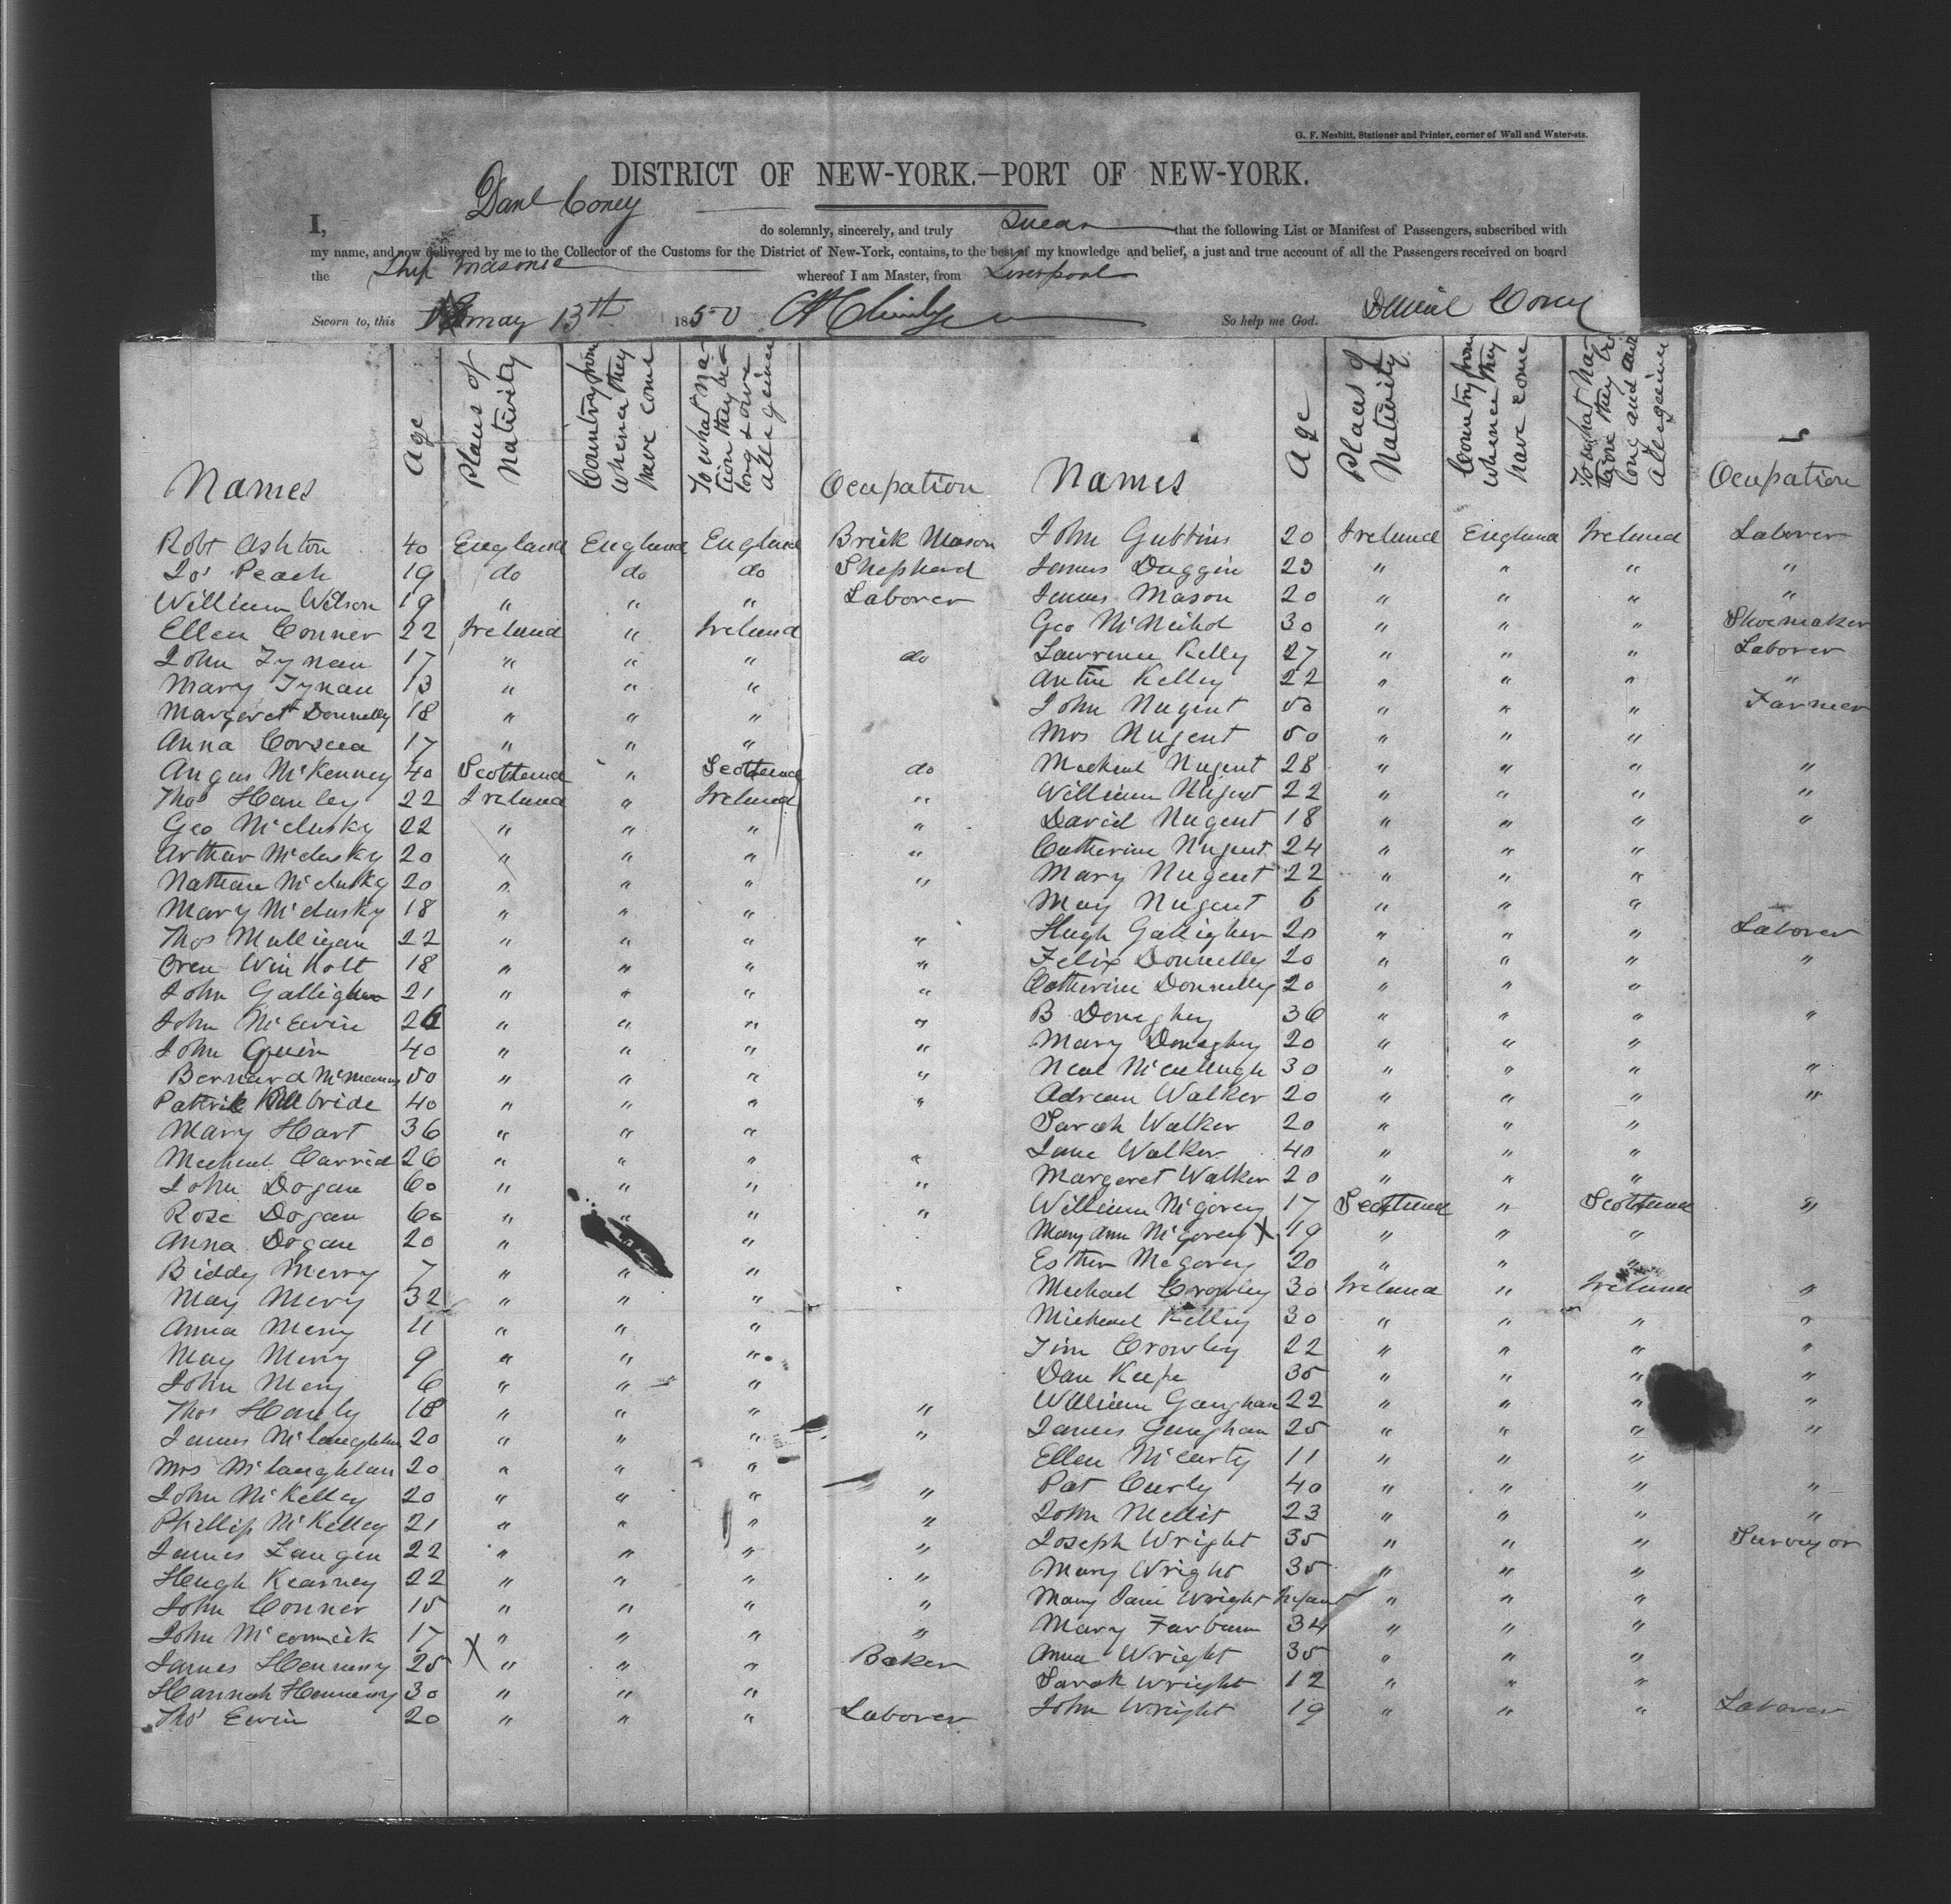 G. F. Nesbitt, Stationer and Printer, corner of Wall and Water-sts.
DISTRICT OF NEW-YORK.—PORT OF NEW-YORK.
I, Danl Coney do solemnly, sincerely, and truly swear that the following List or Manifest of Passengers, subscribed with
my name, and now delivered by me to the Collector of the Customs for the District of New-York, contains, to the best of my knowledge and belief, a just and true account of all the Passengers received on board
the Ship Masonic whereof I am Master, from Liverpool
Sworn to, this May 13th 1850 So help me God. Daniel Coney
Names Age Places of Nativity Country from whence they have come To what nation they belong & owe allegince Ocupation
Robt Ashton 40 England England England Brick Mason
Jos Peach 19 do do do Shepherd
William Wilson 19 " " " Laborer
Ellen Conner 22 Ireland " Ireland
John Tynan 17 " " " do
Mary Tynan 13 " " "
Margeret Donnelly 18 " " "
Anna 17 " " "
Angus McKenney 40 Scotland " Scotland do
Thos Hanley 22 Ireland " Ireland "
Geo McClusky 22 " " " "
Arthur McClusky 20 " " " "
Nathan McClusky 20 " " " "
Mary McClusky 18 " " "
Thos Mulligan 22 " " " "
Oren Winholt 18 " " " "
John Galligher 21 " " " "
John McEwin 26 " " " "
John 40 " " " "
Bernard McManus 50 " " " "
Patrick Killbride 40 " " " "
Mary Hart 36 " " "
Micheal 26 " " " "
John Dogan 60 " " " "
Rose Dogan 60 " " " "
Anna Dogan 20 " " "
Biddy Merry 7 " " "
May Mery 32 " " "
Anna Merry 11 " " "
May Merry 9 " " "
John Mery 6 " " "
Thos 18 " " " "
James McLaughlin 20 " " " "
Mrs McLaughlan 20 " " "
John McKelley 20 " " " "
Phillip McKelley 21 " " " "
James Langen 22 " " " "
Hugh Kearney 22 " " " "
John Conner 15 " " " "
John McCormick 17 " " " "
James Hennessy 25 X " " " Baker
Hannah Hennessy 30 " " "
Thos Ewin 20 " " " Laborer
Names Age Places of Nativity Country from whence they have come To what nation they belong and owe allegince Ocupation
John Gubbins 20 Ireland England Ireland Laborer
James Duggin 23 " " " "
James Mason 20 " " " "
Geo 30 " " " Shoemaker
Lawrence Kelly 27 " " " Laborer
Kelley 22 " " " "
John Nugent 50 " " " Farmer
Mrs Nugent 50 " " "
Micheal Nugent 28 " " " "
William Nugent 22 " " " "
David Nugent 18 " " " "
Catherine Nugent 24 " " "
Mary Nugent 22 " " "
May Nugent 6 " " "
Hugh Galligher 20 " " " Laborer
Felix Donnelly 20 " " " "
Catherine Donnelly 20 " " "
B Doneghey 36 " " " "
Mary Doneghy 20 " " "
Neal McCullugh 30 " " " "
Adrean Walker 20 " " " "
Sarah Walker 20 " " "
Jane Walker 40 " " "
Margeret Walker 20 " " "
William McGorey 17 Scotland " Scotland "
Mary Ann McGorey X 19 " " "
Esther McGorey 20 " " "
Micheal Crowley 30 Ireland " Ireland "
Micheal Kelley 30 " " " "
Tim Crowley 22 " " " "
Dan Keefe 35 " " " "
William Gaughan 22 " " " "
James Gaughan 25 " " " "
Ellen McCarty 11 " " "
Pat Curly 40 " " " "
John Mellit 23 " " " "
Joseph Wright 35 " " " Surveyor
Mary Wright 35 " " "
Mary Jane Wright Infant " " "
Mary 34 " " "
Anna Wright 35 " " "
Sarah Wright 12 " " "
John Wright 19 " " " Laborer